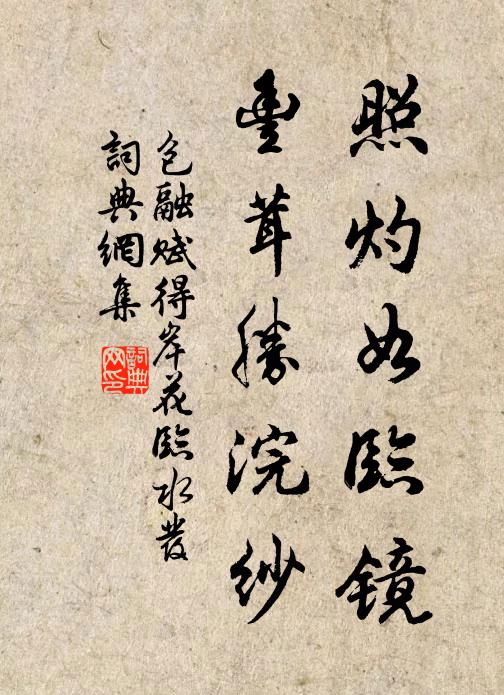 照灼如臨鏡
豐茸勝浣紗
包融賦得岸花臨水發
詞典網集
詞典网印